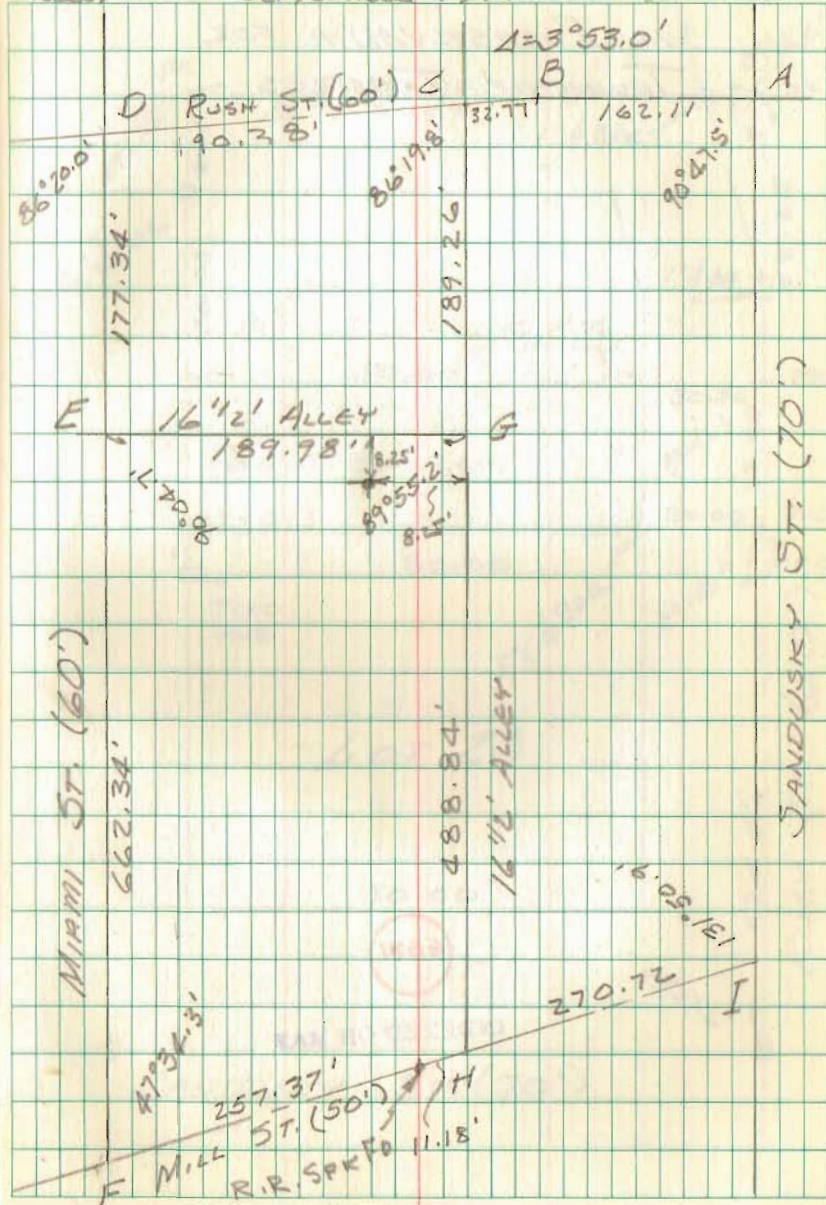 Δ=3°53.0'
D RUSH ST. (60') C B A
190.28' 32.77' 162.11
86°20.0' 86°19.8' 90°47.5'
177.34' 189.26'
E 16 1/2' ALLEY G
189.98'
8.25'
90°04.7' 89°55.2'
8.25'
MIAMI ST. (60')
662.34'
488.84'
16 1/2' ALLEY
SANDUSKY ST. (70')
131°50.9'
270.72 I
47°34.3'
257.37' H
F MILL ST. (50')
R.R. SPK FD 11.18'